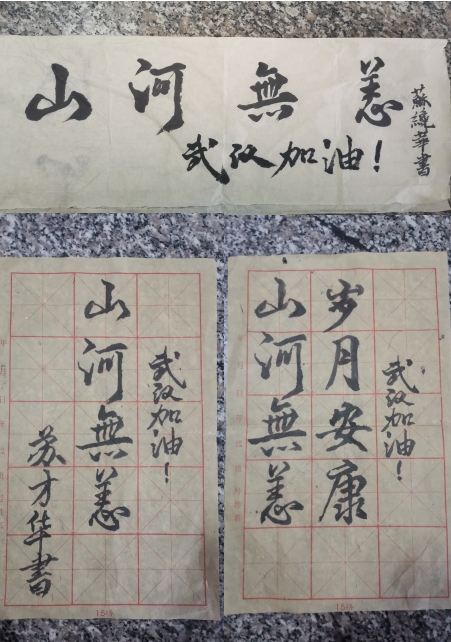 山河無恙
武汉加油！
蘇華書
武汉加油！
山河無恙
苏方华書
15格
武汉加油！
岁月安康
山河無恙
15格